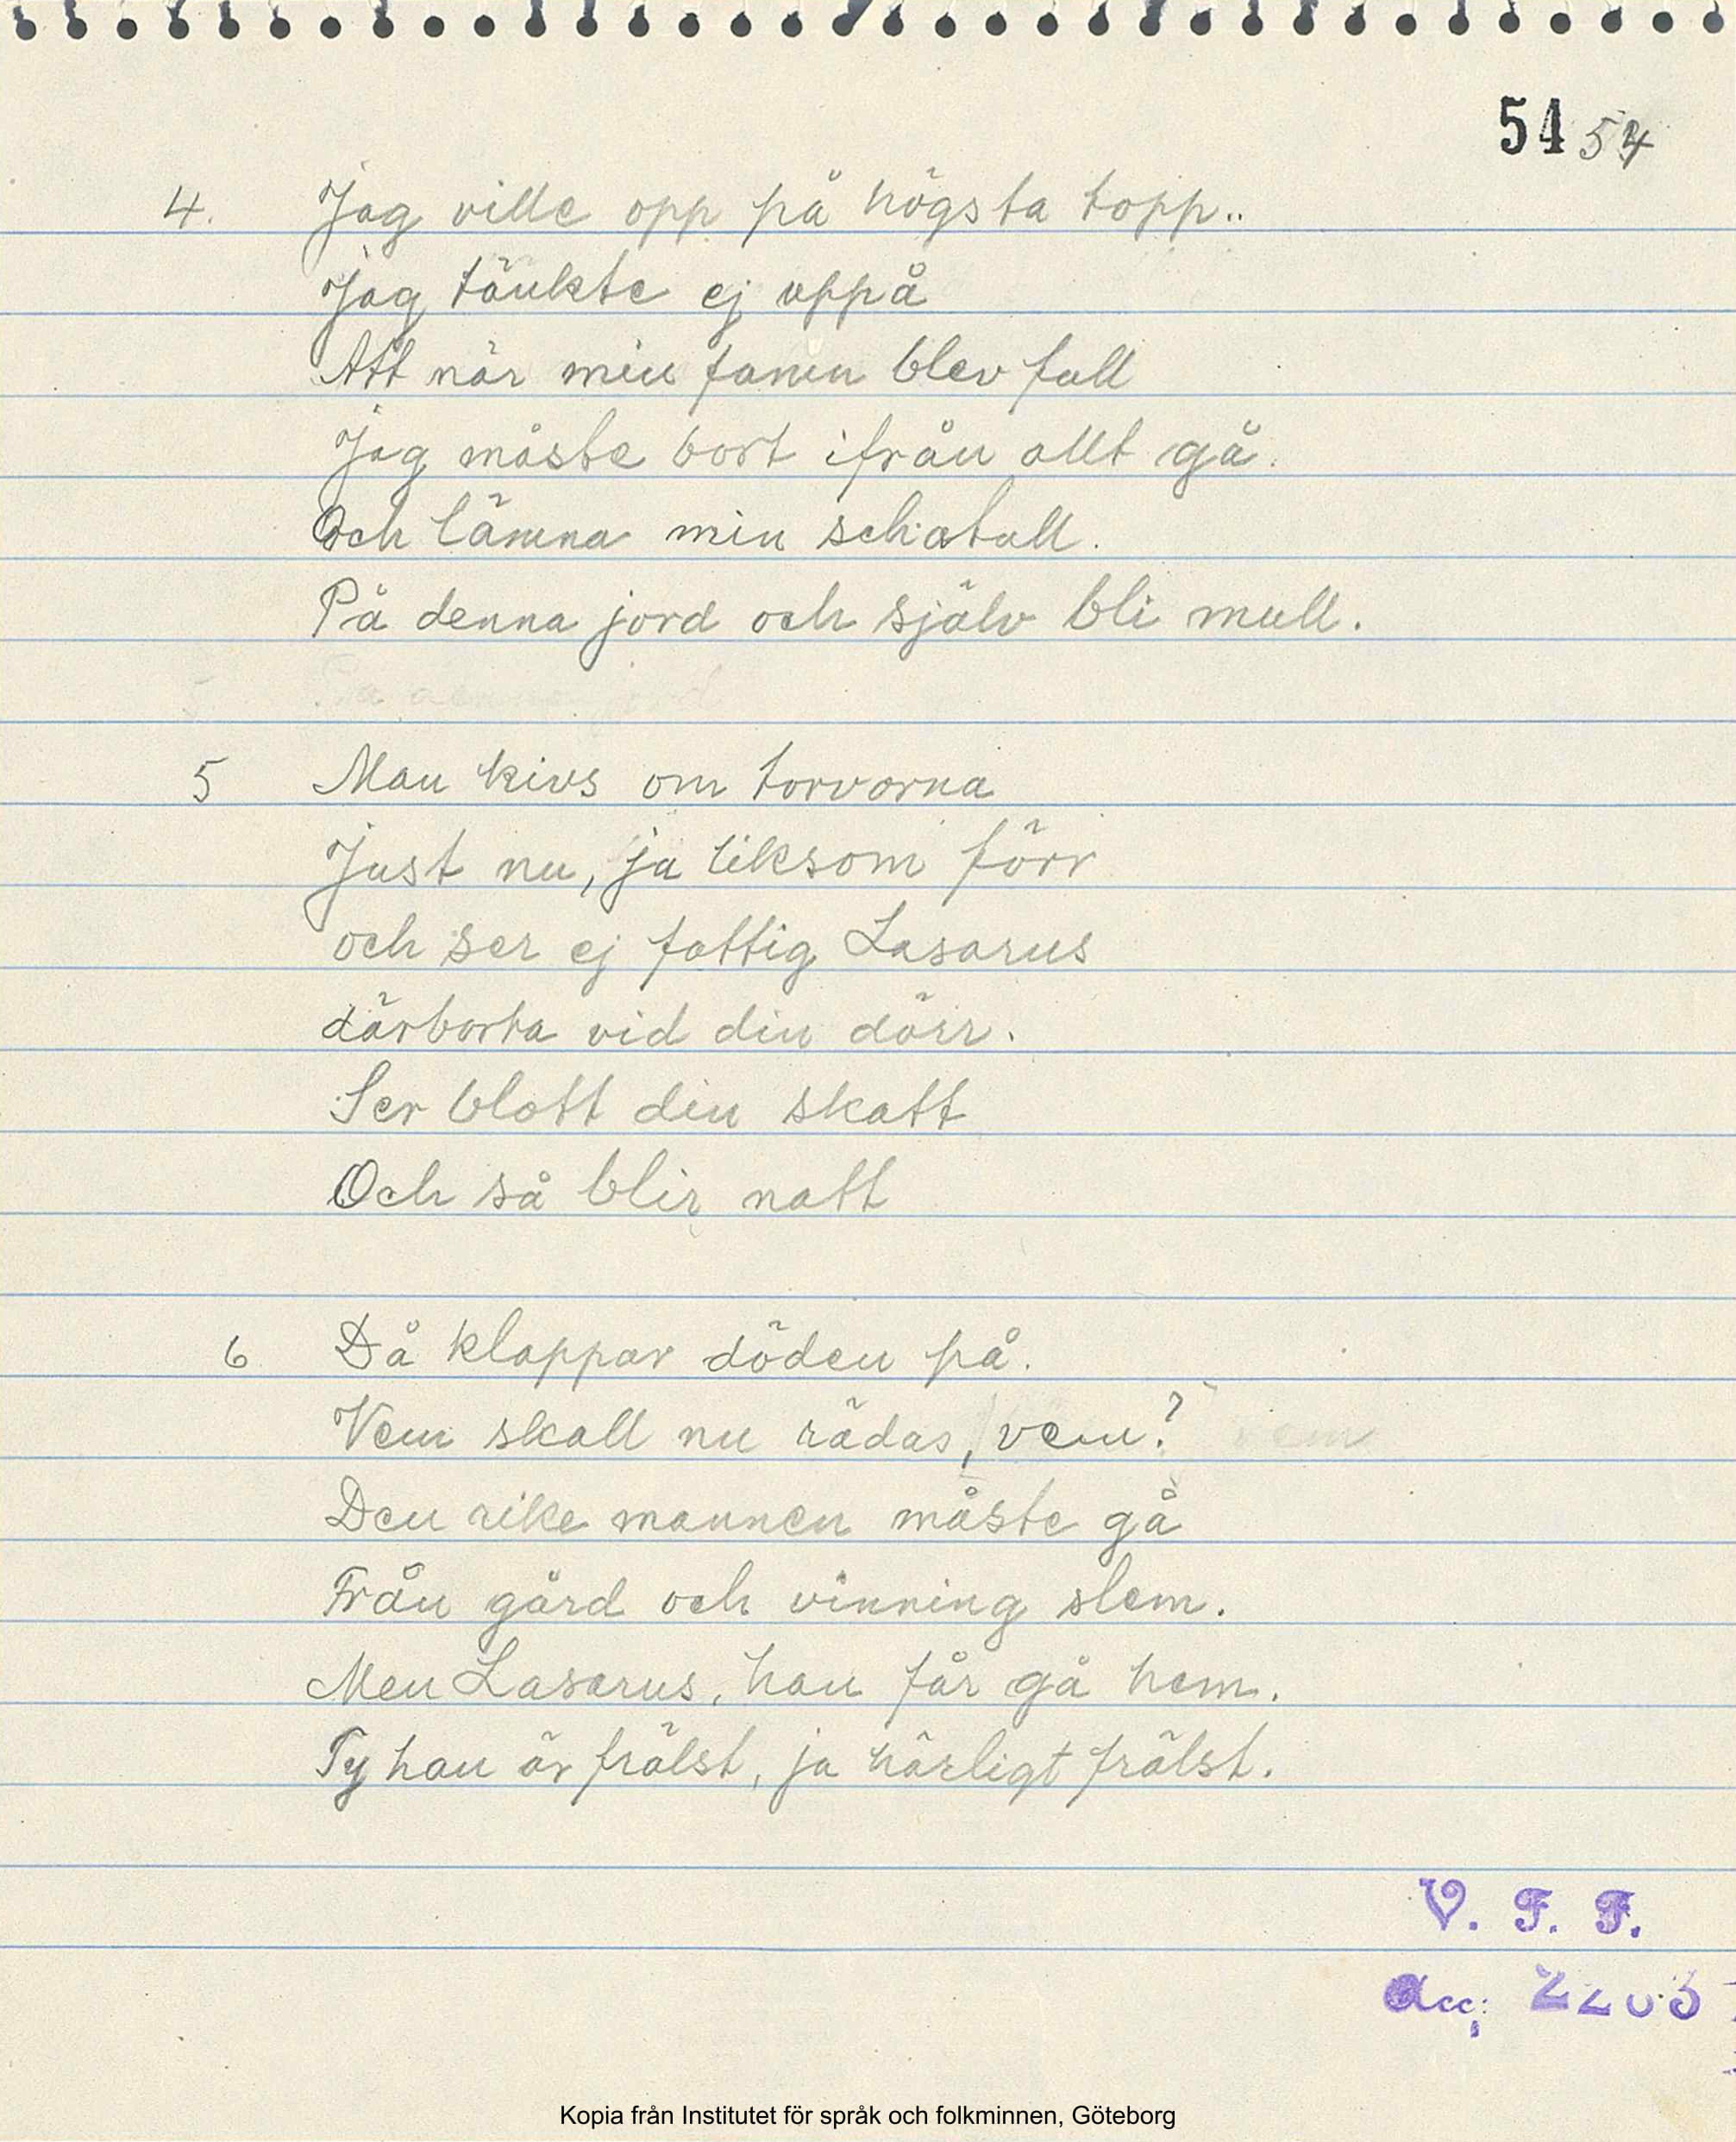 54 54
4. Jag ville opp på högsta topp..
Jag tänkte ej uppå
Att när min famn blev full
Jag måste bort ifrån allt gå.
Och lämna min schatull.
På denna jord och själv bli mull.
5 Man kivs om torvorna
Just nu, ja liksom förr
och ser ej fattig Lasarus
därborta vid din dörr.
Ser blott din skatt
Och så blir natt
6 Då klappar döden på.
Vem skall nu rädas, vem?
Den rike mannen måste gå
Från gård och vinning slem.
Men Lasarus, han får gå hem.
Ty han är frälst, ja härligt frälst.
V. F. F.
Acc; 2203
Kopia från Institutet för språk och folkminnen, Göteborg